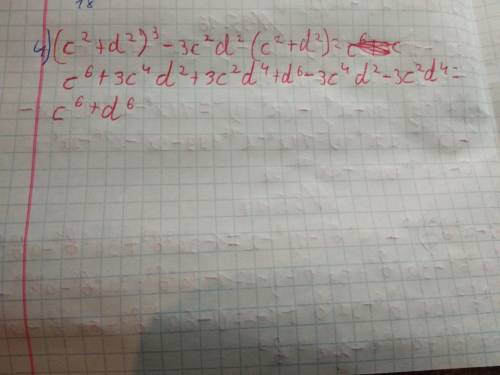 18
4) (c² + d²)³ - 3c²d² (c² + d²) =
c⁶ + 3c⁴d² + 3c²d⁴ + d⁶ - 3c⁴d² - 3c²d⁴ =
c⁶ + d⁶